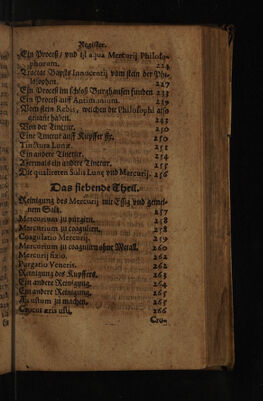 Register.
Ein Proceß / vnd ist aqua Mercurij Philoso-
phorum. 224
Tractat Bapsts Innocentij vom stein der Phi-
losophen. 227
Ein Proceß im schloß Burghausen funden 233
Ein Proceß auß Antimonium. 239
Vom stein Rebis, welchen die Philosophi also
genant haben. 243
Von der Tinctur. 250
Eine Tinctur auff Kupffer 250
Tinctura Lunæ. 251
Ein andere Tinctur. 254
Abermals ein andere Tinctur. 255
Die qualiteten Solis Lunę vnd Marcurij. 256
Das siebende Theil.
Reinigung des Mercurij mit Essig vnd gemei-
nem Saltz. 257
Mercurium zu purgirn. 258
Mercurium zu coagulirn. 258
Coagulatio Mercurij. 259
Mercurium zu coagulirn ohne Metall. 260
Mercurij fixio. 262
Purgatio Veneris. 262
Reinigung des Kupffers. 263
Ein andere Reinigung. 264
Ein andere Reinigung. 265
Æs ustum zu machen. 265
Crocus æris usti. 266
Cro-